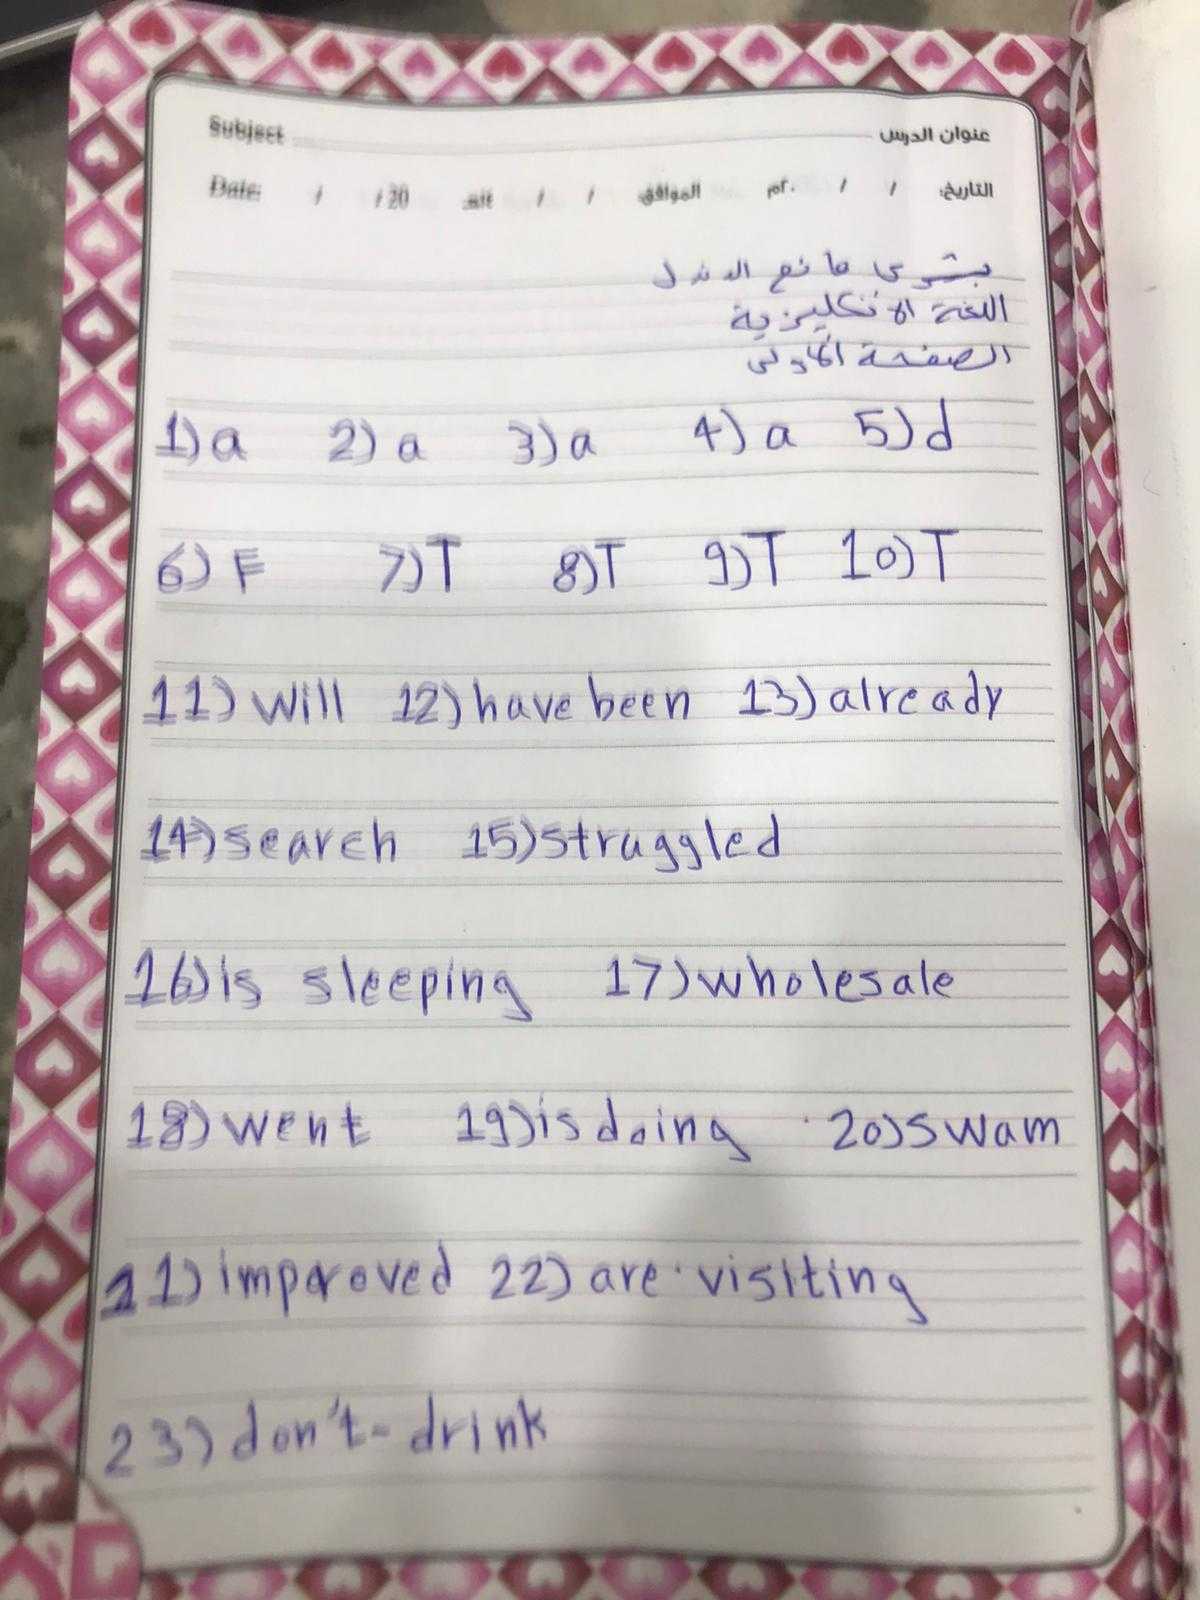 Subject عنوان الدرس
Date: / / 20 الموافق / / التاريخ: / / م
بشرى مانع
اللغة الانكليزية
الصفحة الأولى
1) a 2) a 3) a 4) a 5) d
6) F 7) T 8) T 9) T 10) T
11) will 12) have been 13) already
14) search 15) struggled
16) is sleeping 17) wholesale
18) went 19) is doing 20) swam
21) improved 22) are visiting
23) don't drink